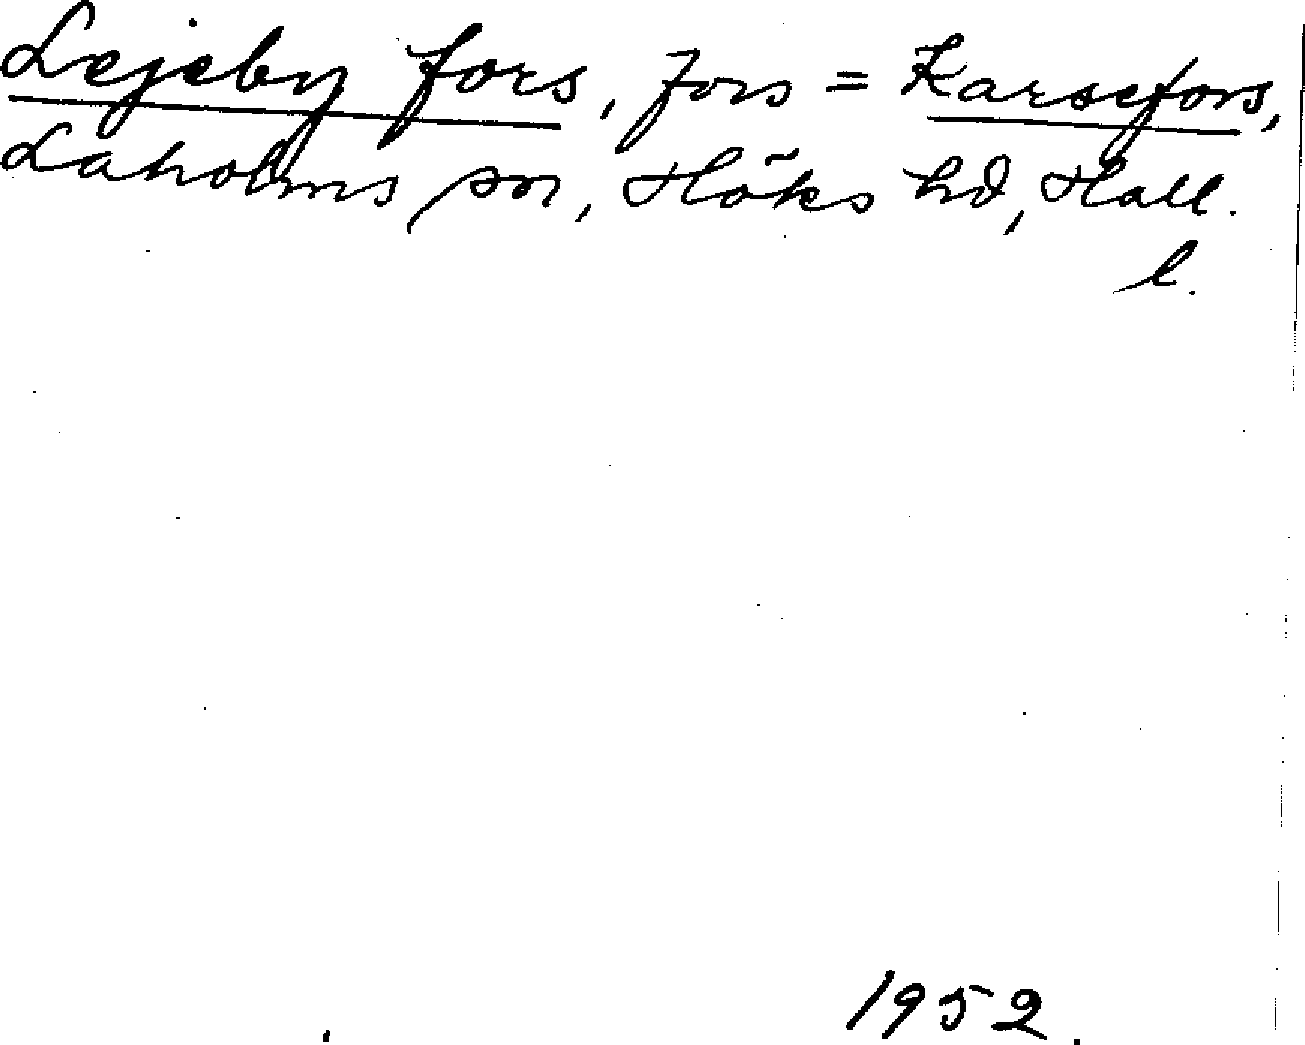 Lejeby fors, fors = Karsefors,
Laholms sn, Höks hd, Hall.
l.
1952.